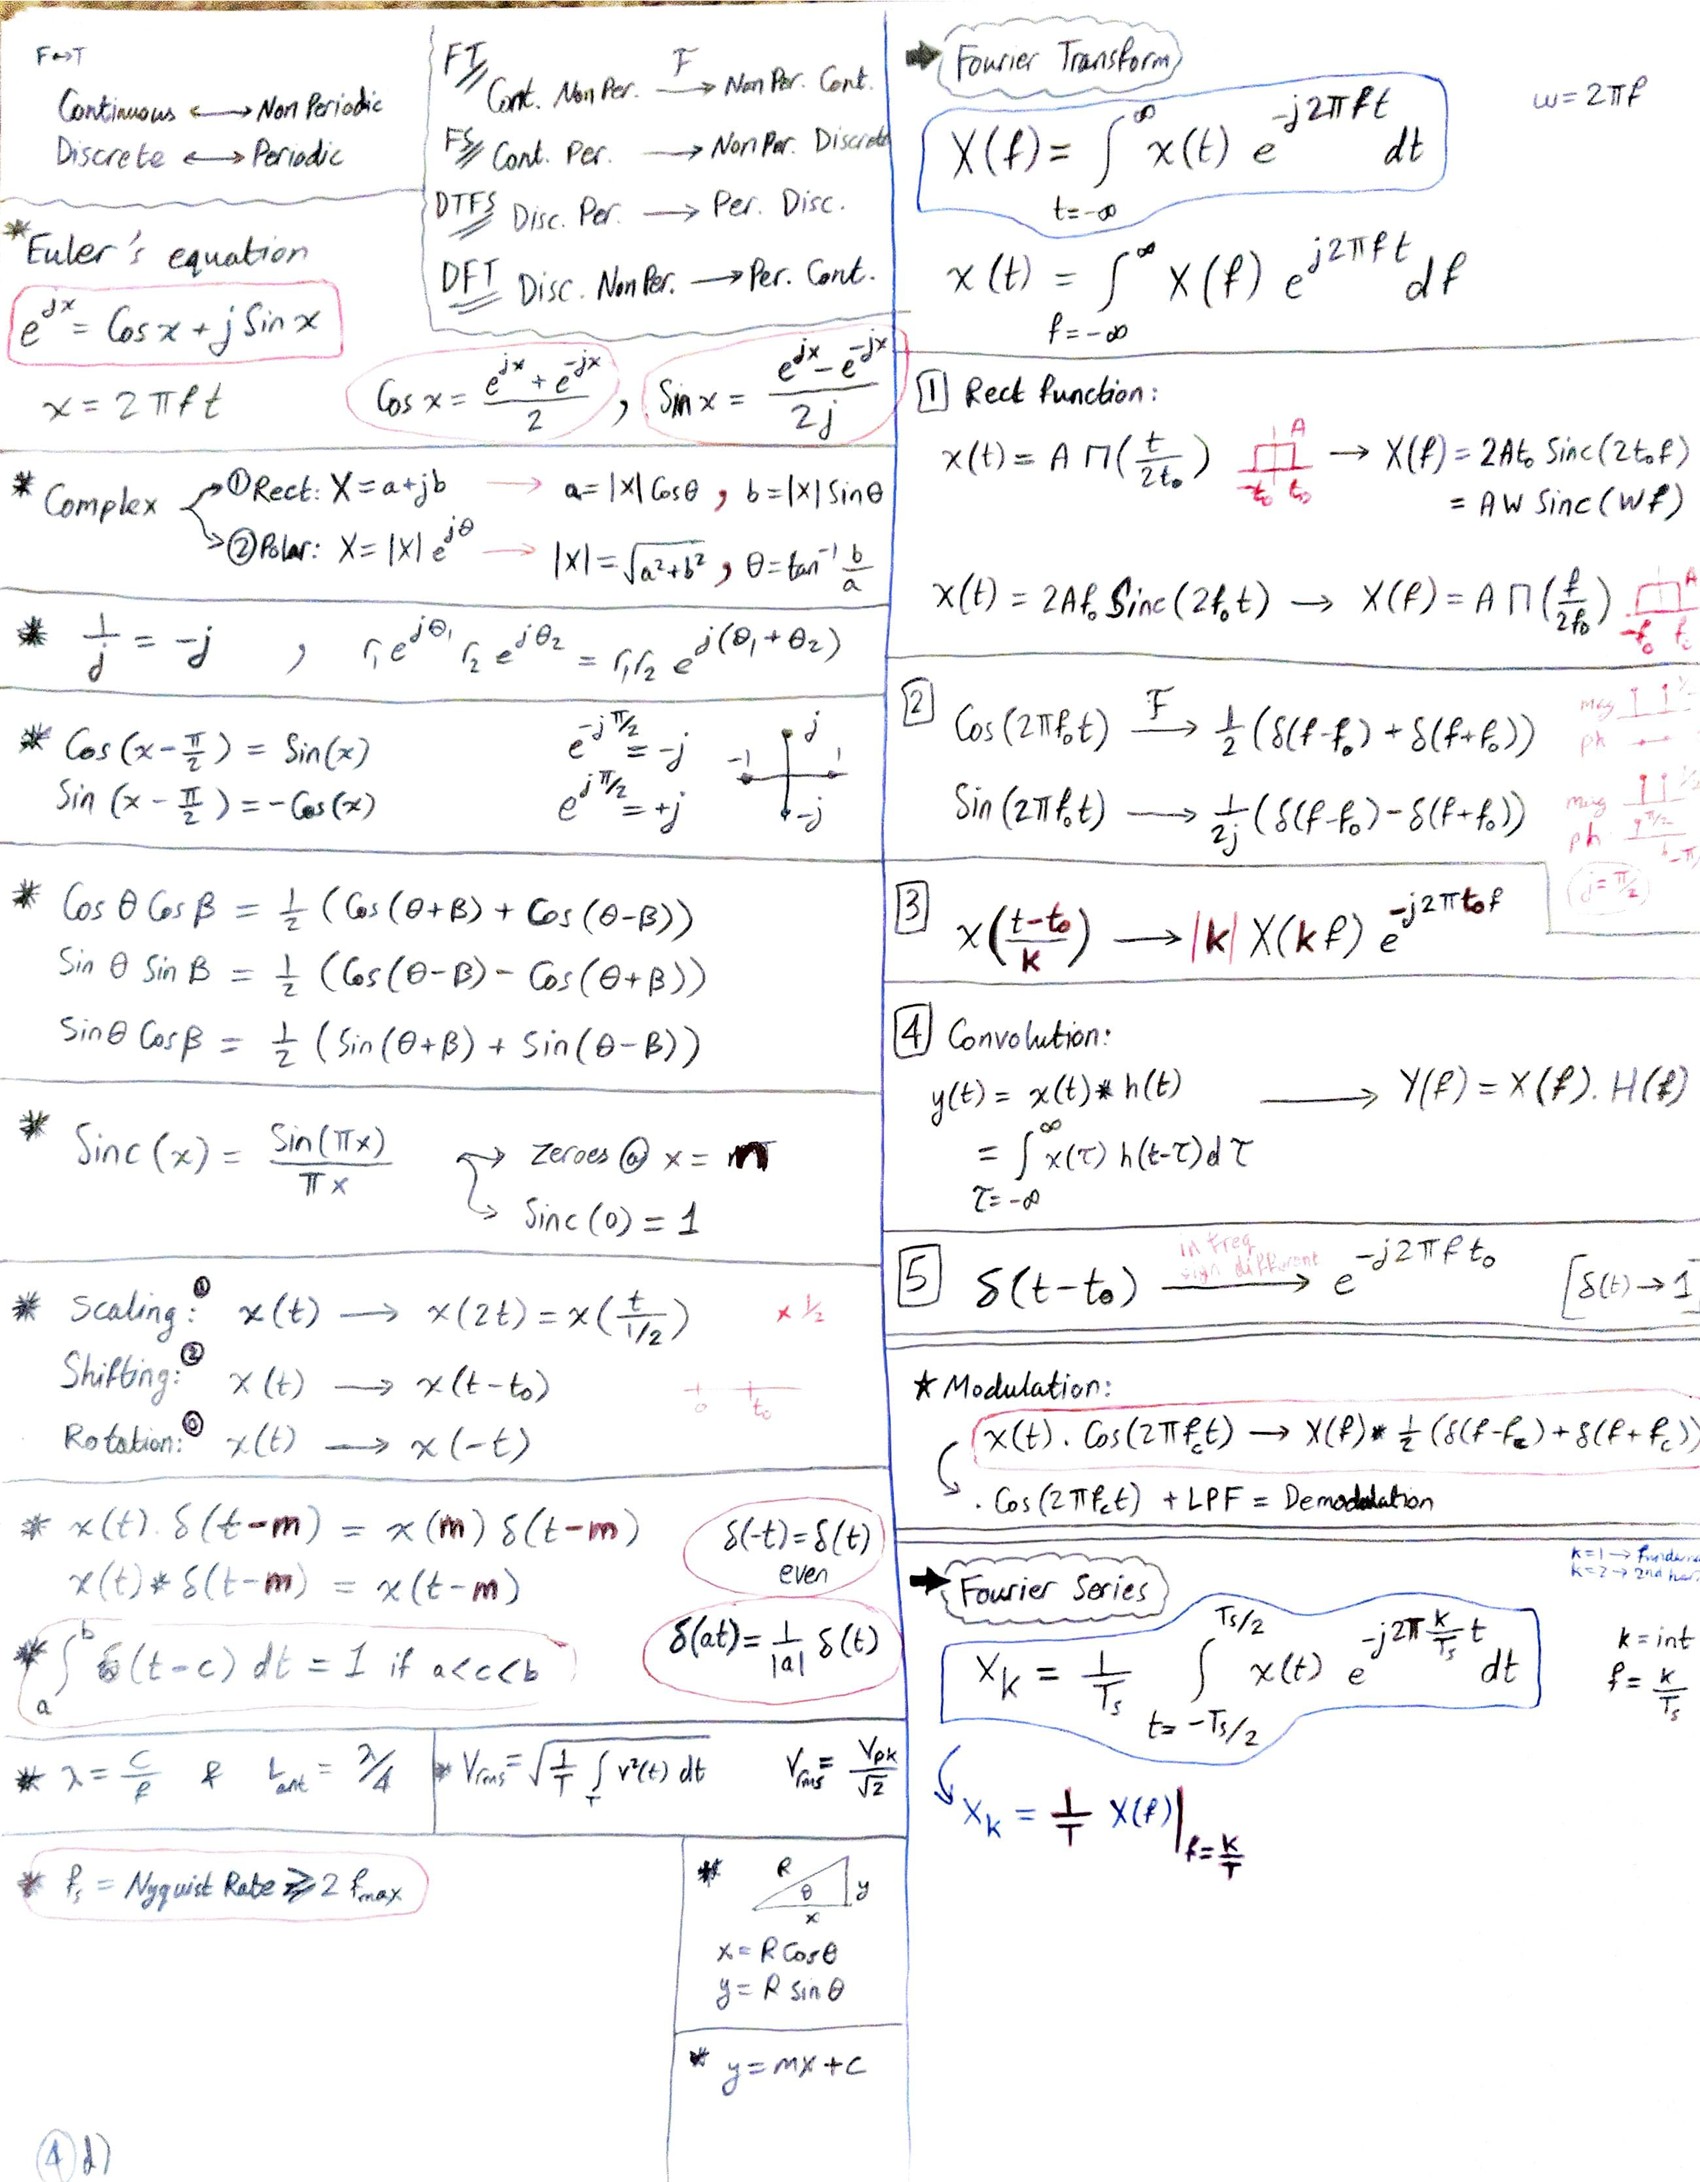 F↔T
Continuous ⟷ Non Periodic
Discrete ⟷ Periodic
FT
Cont. Non Per. F→ Non Per. Cont.
FS Cont. Per. → Non Per. Discrete
DTFS Disc. Per. → Per. Disc.
DFT Disc. Non Per. → Per. Cont.
* Euler's equation
e^{jx} = Cos x + j Sin x
x = 2πft
Cos x = (e^{jx} + e^{-jx})/2 , Sin x = (e^{jx} - e^{-jx})/2j
* Complex
① Rect: X = a+jb → a = |X| Cosθ , b = |X| Sinθ
② Polar: X = |X| e^{jθ} → |X| = √(a²+b²) , θ = tan⁻¹ b/a
* 1/j = -j , r₁e^{jθ₁} r₂e^{jθ₂} = r₁r₂ e^{j(θ₁+θ₂)}
* Cos(x - π/2) = Sin(x)
Sin(x - π/2) = -Cos(x)
e^{-jπ/2} = -j
e^{jπ/2} = +j
j
-1 1
-j
* Cos θ Cos β = 1/2 (Cos(θ+β) + Cos(θ-β))
Sin θ Sin β = 1/2 (Cos(θ-β) - Cos(θ+β))
Sin θ Cos β = 1/2 (Sin(θ+β) + Sin(θ-β))
* Sinc(x) = Sin(πx)/πx → zeroes @ x =
→ Sinc(0) = 1
* Scaling: ① x(t) → x(2t) = x(t/(1/2)) × 1/2
Shifting: ② x(t) → x(t-t₀) 0 t₀
Rotation: ⓪ x(t) → x(-t)
* x(t) . δ(t-m) = x(m) δ(t-m)
x(t) * δ(t-m) = x(t-m)
δ(-t) = δ(t)
even
* ∫_a^b δ(t-c) dt = 1 if a<c<b
δ(at) = 1/|a| δ(t)
* λ = c/f & L_ant = λ/4
* V_rms = √(1/T ∫_T v²(t) dt) V_rms = V_pk/√2
* f_s = Nyquist Rate ⩾ 2 f_max
* R θ y
x
x = R Cosθ
y = R sin θ
* y = mx + c
④ d)
Fourier Transform
w = 2πf
X(f) = ∫_{t=-∞}^{∞} x(t) e^{-j2πft} dt
x(t) = ∫_{f=-∞}^{∞} X(f) e^{j2πft} df
1 Rect function:
x(t) = A Π(t/2t₀) A -t₀ t₀ → X(f) = 2At₀ Sinc(2t₀f)
= AW Sinc(Wf)
x(t) = 2Af₀ Sinc(2f₀t) → X(f) = A Π(f/2f₀) A -f₀
2 Cos(2πf₀t) F→ 1/2 (δ(f-f₀) + δ(f+f₀))
mag
ph
Sin(2πf₀t) → 1/2j (δ(f-f₀) - δ(f+f₀))
mag
ph π/2
j = π/2
3 x((t-t₀)/k) → |k| X(kf) e^{-j2πt₀f}
4 Convolution:
y(t) = x(t) * h(t) → Y(f) = X(f) . H(f)
= ∫_{τ=-∞}^{∞} x(τ) h(t-τ) dτ
5 δ(t-t₀) → e^{-j2πft₀} [δ(t) → 1]
in freq
sign different
★ Modulation:
x(t) . Cos(2πf_c t) → X(f) * 1/2 (δ(f-f_c) + δ(f+f_c))
. Cos(2πf_c t) + LPF = Demodulation
Fourier Series
k=1 →
k=2 → 2nd
X_k = 1/T_s ∫_{t=-Ts/2}^{Ts/2} x(t) e^{-j2π(k/T_s)t} dt
k = int
f = k/T_s
X_k = 1/T X(f)|_{f=k/T}